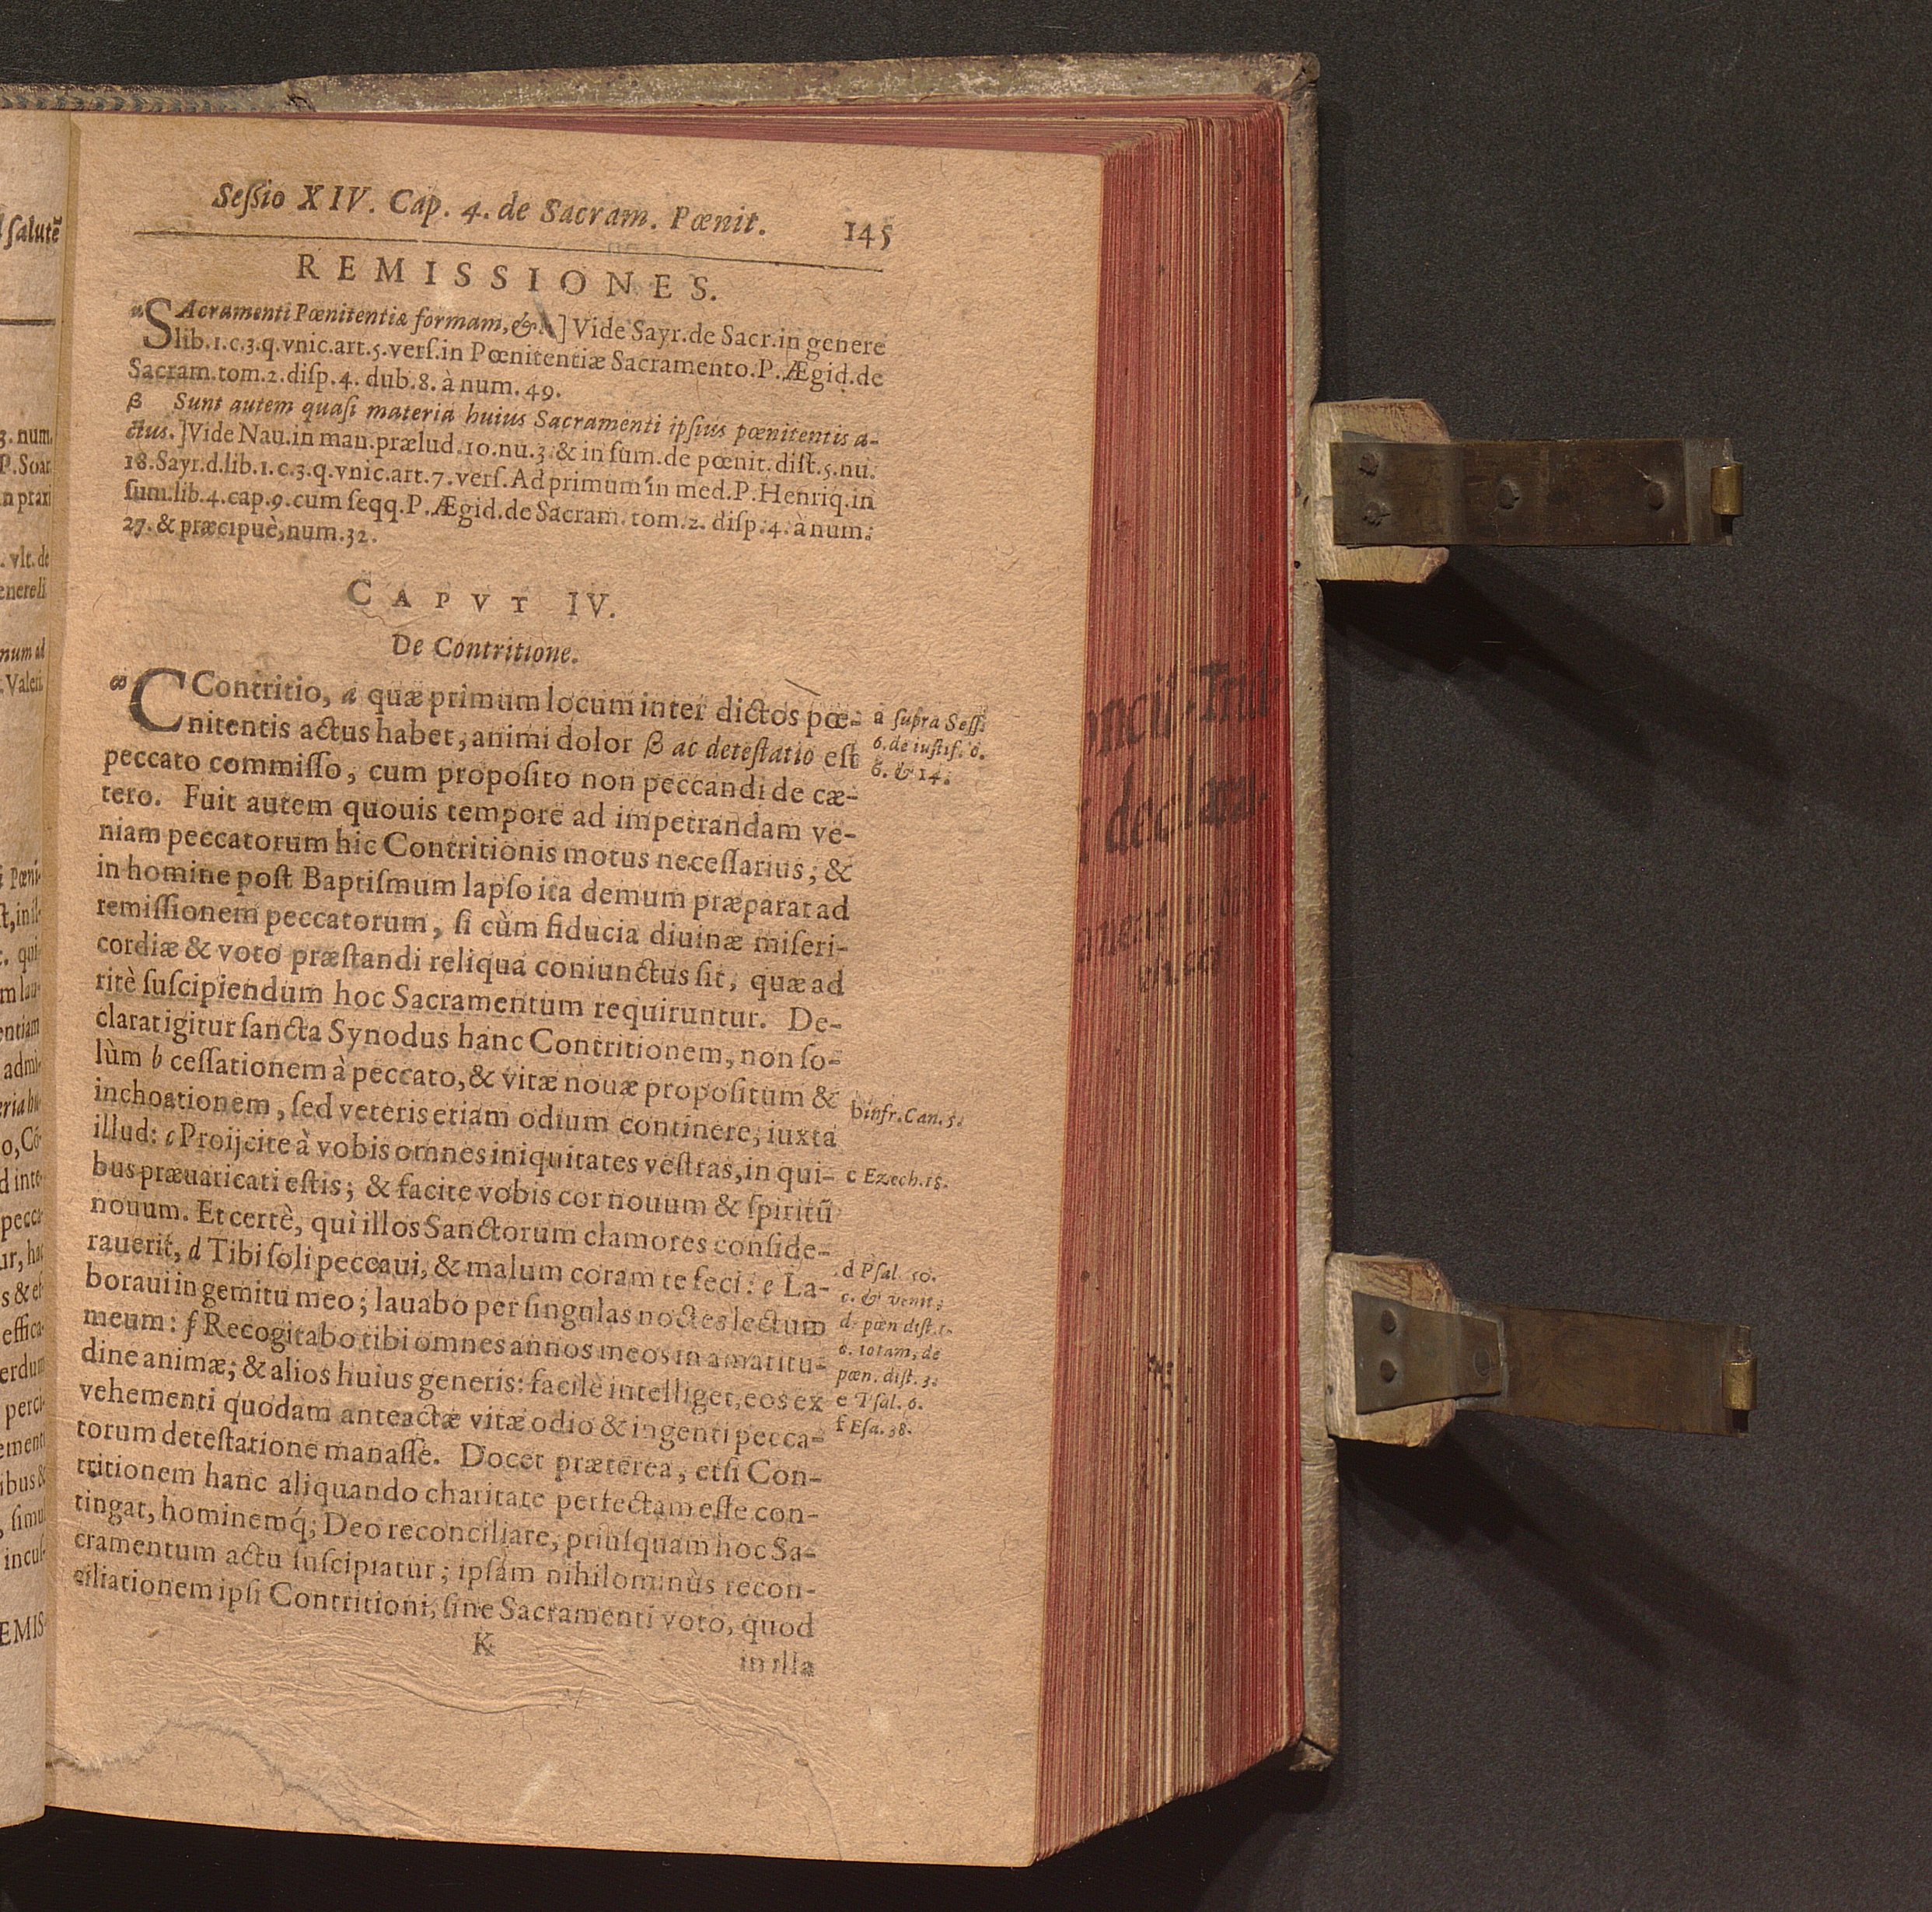 Seſſio XIV. Cap. 4. de Sacram. Pœnit. 145
REMISSIONES.
SAcramenti Pœnitentiæ formam, &.] Vide Sayr. de Sacr. in genere
lib. 1. c. 3. q. vnic. art. 5. verſ. in Pœnitentiæ Sacramento. P. Ægid. de
Sacram. tom. 2. diſp. 4. dub. 8. à num. 49.
β Sunt autem quaſi materia huius Sacramenti ipſius pœnitentis a-
ctus.] Vide Nau. in man. prælud. 10. nu. 3. & in ſum. de pœnit. diſt. 5. nu.
18. Sayr. d. lib. 1. c. 3. q. vnic. art. 7. verſ. Ad primum in med. P. Henriq. in
ſum. lib. 4. cap. 9. cum ſeqq. P. Ægid. de Sacram. tom. 2. diſp. 4. à num.
27. & præcipuè, num. 32.
CAPVT IV.
De Contritione.
CContritio, a quæ primum locum inter dictos pœ-
nitentis actus habet, animi dolor β ac deteſtatio eſt
peccato commiſſo, cum propoſito non peccandi de cæ-
tero. Fuit autem quouis tempore ad impetrandam ve-
niam peccatorum hic Contritionis motus neceſſarius; &
in homine poſt Baptiſmum lapſo ita demum præparat ad
remiſſionem peccatorum, ſi cùm fiducia diuinæ miſeri-
cordiæ & voto præſtandi reliqua coniunctus ſit, quæ ad
ritè ſuſcipiendum hoc Sacramentum requiruntur. De-
clarat igitur ſancta Synodus hanc Contritionem, non ſo-
lùm b ceſſationem à peccato, & vitæ nouæ propoſitum &
inchoationem, ſed veteris etiam odium continere, iuxta
illud: c Proijcite à vobis omnes iniquitates veſtras, in qui-
bus præuaricati eſtis; & facite vobis cor nouum & ſpiritũ
nouum. Et certè, qui illos Sanctorum clamores conſide-
rauerit, d Tibi ſoli peccaui, & malum coram te feci: e La-
boraui in gemitu meo; lauabo per ſingulas noctes lectum
meum: f Recogitabo tibi omnes annos meos in amaritu-
dine animæ; & alios huius generis: facilè intelliget, eos ex
vehementi quodam anteactæ vitæ odio & ingenti pecca-
torum deteſtatione manaſſe. Docet præterea, etſi Con-
tritionem hanc aliquando charitate perfectam eſſe con-
tingat, hominemq́; Deo reconciliare, priuſquam hoc Sa-
cramentum actu ſuſcipiatur; ipſam nihilominùs recon-
ciliationem ipſi Contritioni, ſine Sacramenti voto, quod
K
in illa
a ſupra Seſſ.
6. de iuſtif. c.
6. & 14.
b infr. Can. 5.
c Ezech. 18.
d Pſal. 50.
c. & venit,
d. pœn diſt. 1.
6. totam, de
pœn. diſt. 3.
e Pſal. 6.
f Eſa. 38.
ſalutẽ
3. num.
P. Soar.
in praxi
. vlt. de
num ad
. Valeri.
Pœni-
. qui
m lau-
entiam
admi-
o, Cõ-
d inte-
pecca
s & ef-
effica-
erdum
, ſimul
EMIS-
declara.